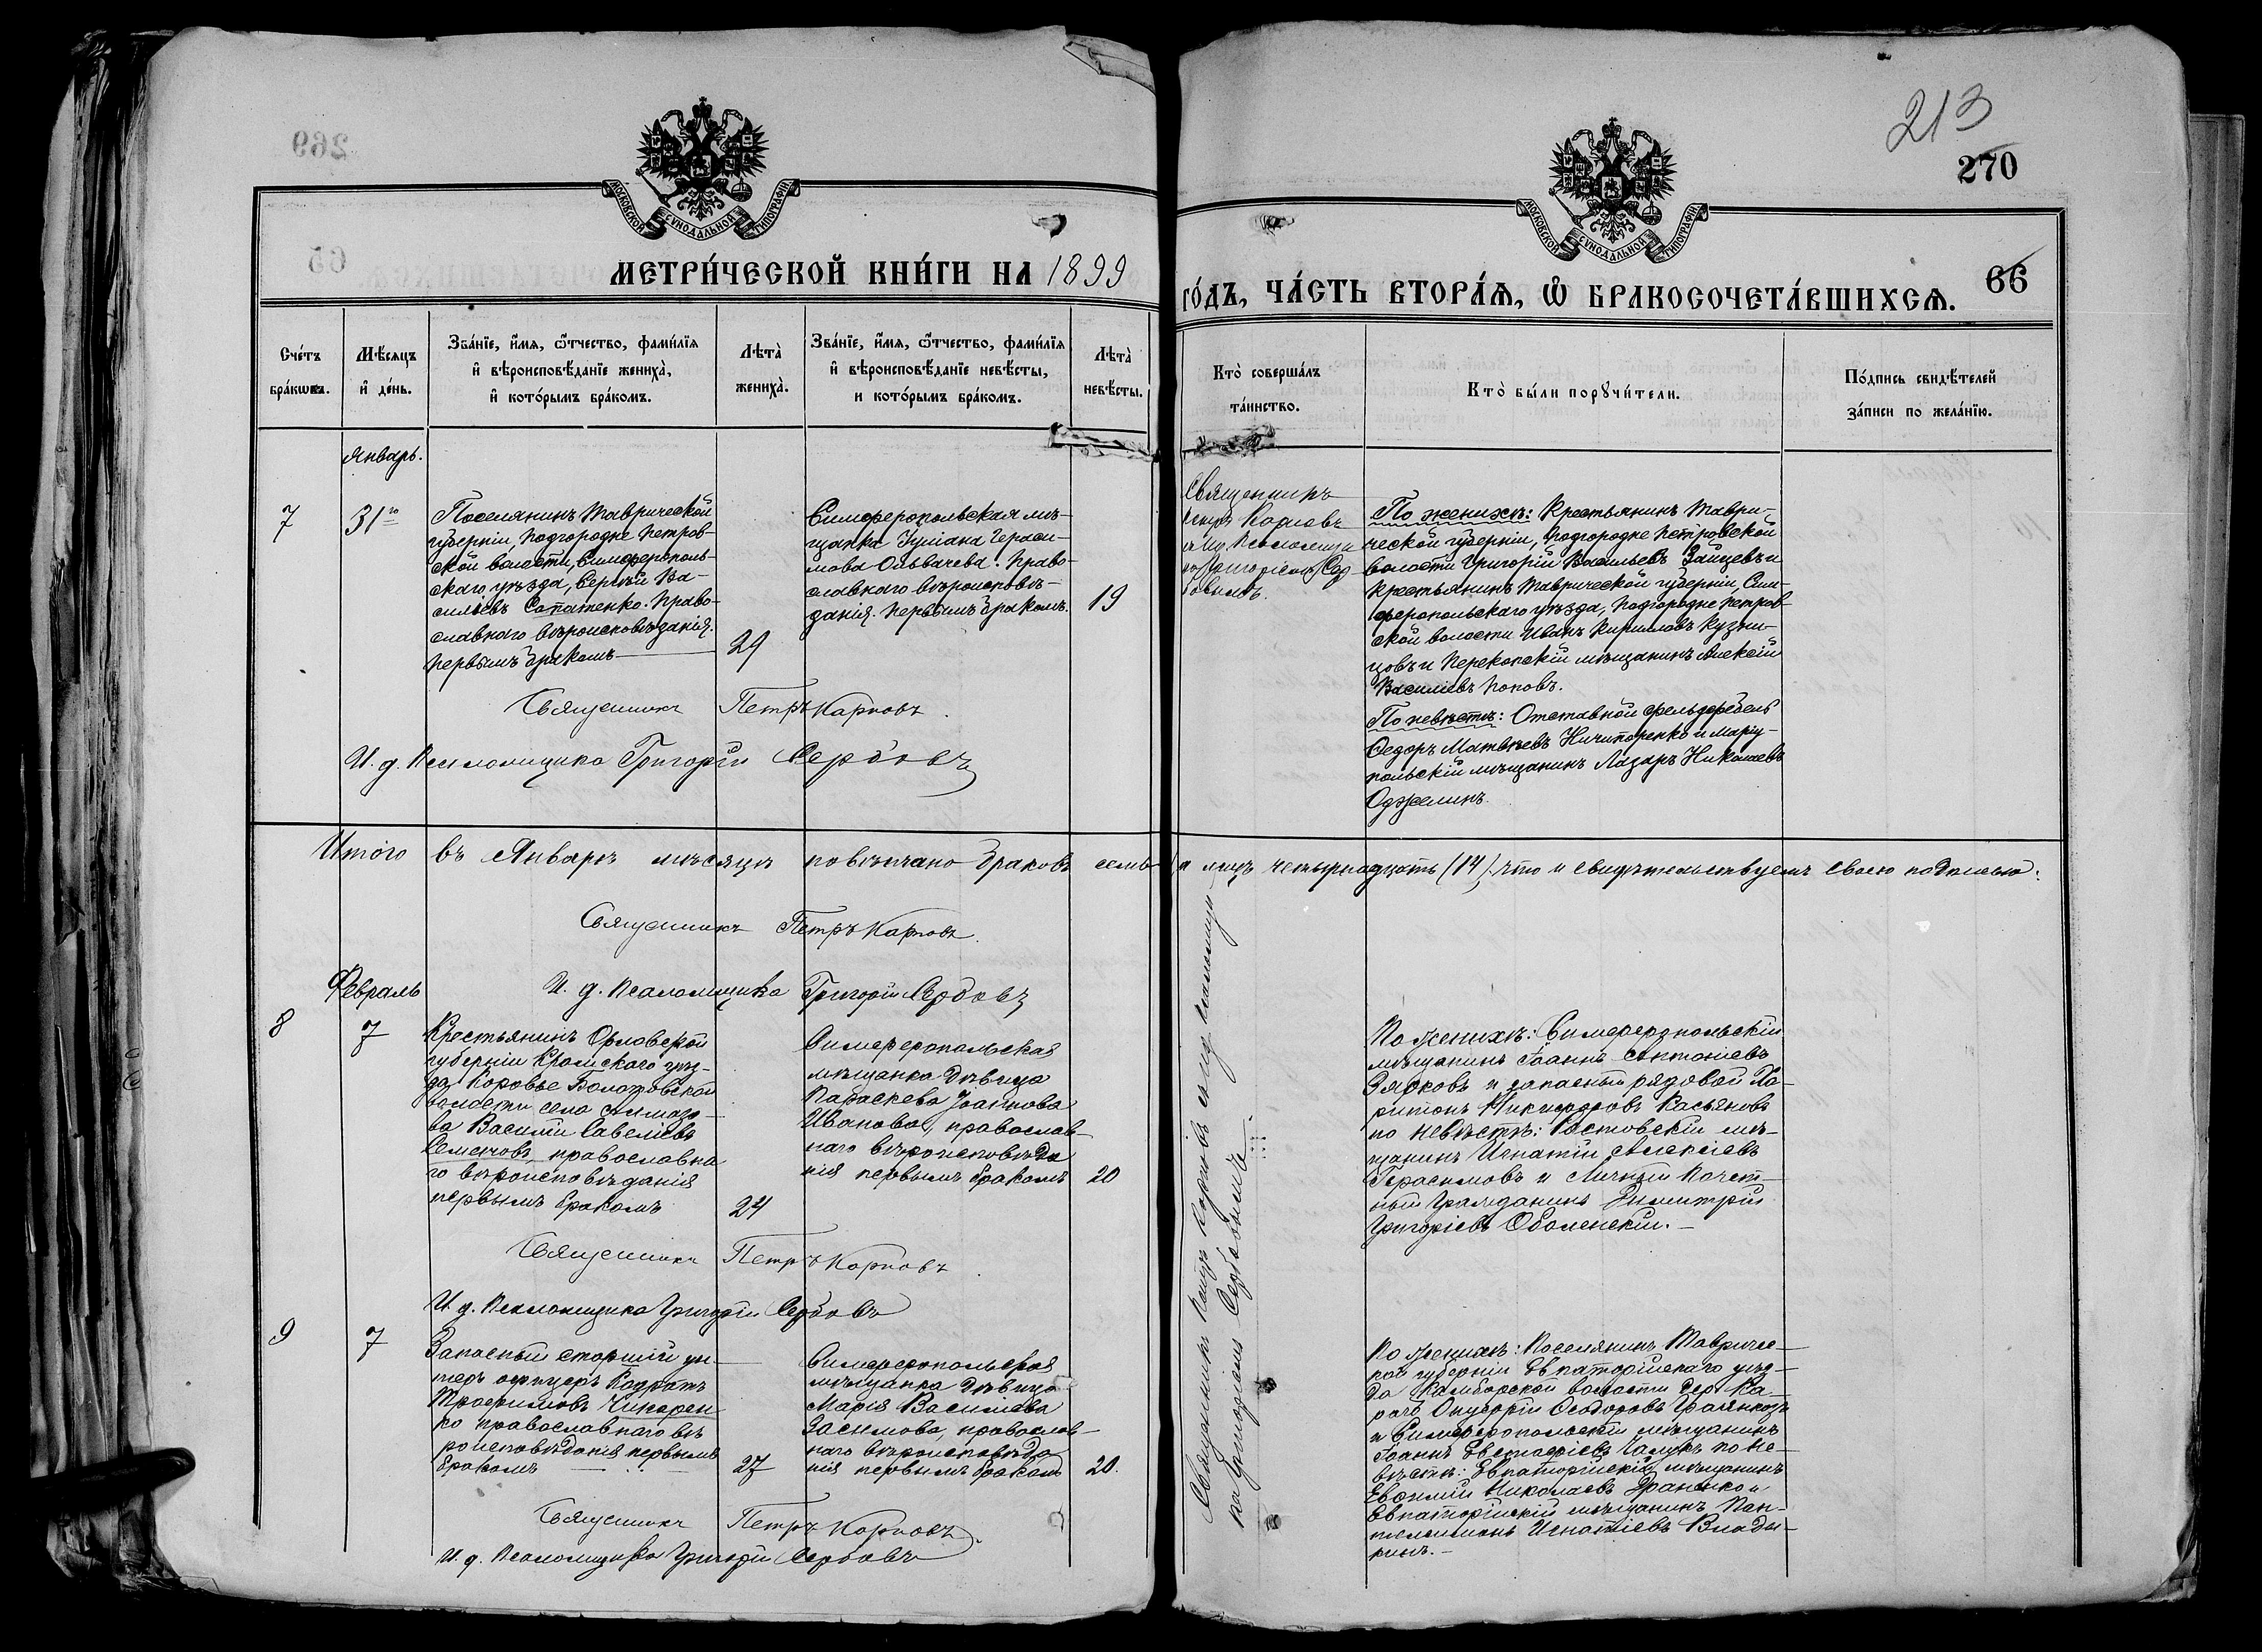 213
270
269
МОСКОВСКОЙ СУНОДАЛЬНОЙ ТИПОГРАФІИ.
МОСКОВСКОЙ СУНОДАЛЬНОЙ ТИПОГРАФІИ.
МЕТРИ́ЧЕСКОЙ КНИ́ГИ НА 1899
ГО́ДЪ, ЧА́СТЬ ВТОРА́Я, Ѡ БРАКОСОЧЕТА́ВШИХСЯ.
66
65
Сче́тъ
бра́кѡвъ.
Мѣ́сяцъ
и де́нь.
Зва́нїе, и́мя, ѻ҆́тчество, фами́лїя
и вѣроисповѣ́данїе жениха̀,
и кото́рымъ бра́комъ.
Лѣта̀
жениха̀.
Зва́нїе, и́мя, ѻ҆́тчество, фами́лїя
и вѣроисповѣ́данїе невѣ́сты,
и кото́рымъ бра́комъ.
Лѣта̀
невѣ́сты.
Кто̀ соверша́лъ
та́инство.
Кто̀ бы́ли порꙋчи́тели.
По́дпись свидѣ́телей
за́писи по жела́нїю.
Январь.
7
31го
Поселянинъ Таврической
губерніи, Подгородне Петров-
ской волости, Симферополь-
скаго уѣзда, Сергѣй Ва-
сильевъ Сопатенко. Право-
славнаго вѣроисповѣданія.
Первымъ бракомъ
29
Симферопольская мѣ-
щанка Іуліана Гераси-
мова Ольвачева. Право-
славнаго вѣроисповѣ-
данія. Первымъ бракомъ.
19
Священникъ
Петръ Карповъ
съ и. д. псаломщи
ка Григоріемъ Сер
бовымъ.
По женихѣ: Крестьянинъ Таври-
ческой губерніи, Подгородне Петровской
волости Григорій Васильевъ Зайцевъ и
крестьянинъ Таврической губерніи, Сим-
феропольскаго уѣзда, Подгородне Петров-
ской волости Иванъ Кирилловъ Кузне-
цовъ и Перекопскій мѣщанинъ Алексій
Василіевъ Поповъ.
По невѣстѣ: Отставной фельдфебель
Федоръ Матвѣевъ Ничипоренко и Маріу-
польскій мѣщанинъ Лазарь Николаевъ
Оджелинъ.
Священникъ Петръ Карповъ.
И. д. Псаломщика Григорій Сербовъ
Итого въ Январѣ мѣсяцѣ повѣнчано браковъ семь а лицъ четырнадцать (14), что и свидѣтельствуемъ своею подписью:
Священникъ Петръ Карповъ.
И. д. Псаломщика Григорій Сербовъ
Февраль
8
7
Крестьянинъ Орловской
губерніи Кромскаго уѣз-
да Коровье Болотовской
волости села Алмазо-
ва Василій Савеліевъ
Семеновъ, православна
го вѣроисповѣданія
первымъ бракомъ
24
Симферопольская
мѣщанка дѣвица
Параскева Іоаннова
Иванова, православ-
наго вѣроисповѣда
нія первымъ бракомъ
20
Священникъ Петръ Карповъ съ и. д. псаломщи
ка Григоріемъ Сербовымъ.
По женихѣ: Симферопольскій
мѣщанинъ Іоаннъ Антоніевъ
Зябковъ и запасный рядовой Ха-
ритонъ Никифоровъ Касьяновъ
по невѣстѣ: Ростовскій мѣ-
щанинъ Игнатій Алексіевъ
Герасимовъ и Личный Почет-
ный Гражданинъ Димитрій
Григоріевъ Оболенскій.
Священникъ Петръ Карповъ.
И. д. Псаломщика Григорій Сербовъ
9
7
Запасный старшій ун-
теръ офицеръ Кодратъ
Трофимовъ Чикорен
ко православнаго вѣ
роисповѣданія первымъ
бракомъ
27
Симферопольская
мѣщанка дѣвица
Марія Василіева
Засимова, православ-
наго вѣроисповѣда
нія первымъ бракомъ
20.
По женихѣ: Поселянинъ Тавричес-
кой губерніи Евпаторійскаго уѣз-
да Камбарской волости дер. Ка-
рачъ Онуфрій Ѳеодоровъ
и Симферопольскій мѣщанинъ
Іоаннъ Евстафіевъ по не-
вѣстѣ: Евпаторійскій мѣщанинъ
Евѳимій Николаевъ и
Евпаторійскій мѣщанинъ Пан-
телеимонъ Игнатіевъ Влады-
кинъ.
Священникъ Петръ Карповъ.
И. д. Псаломщика Григорій Сербовъ